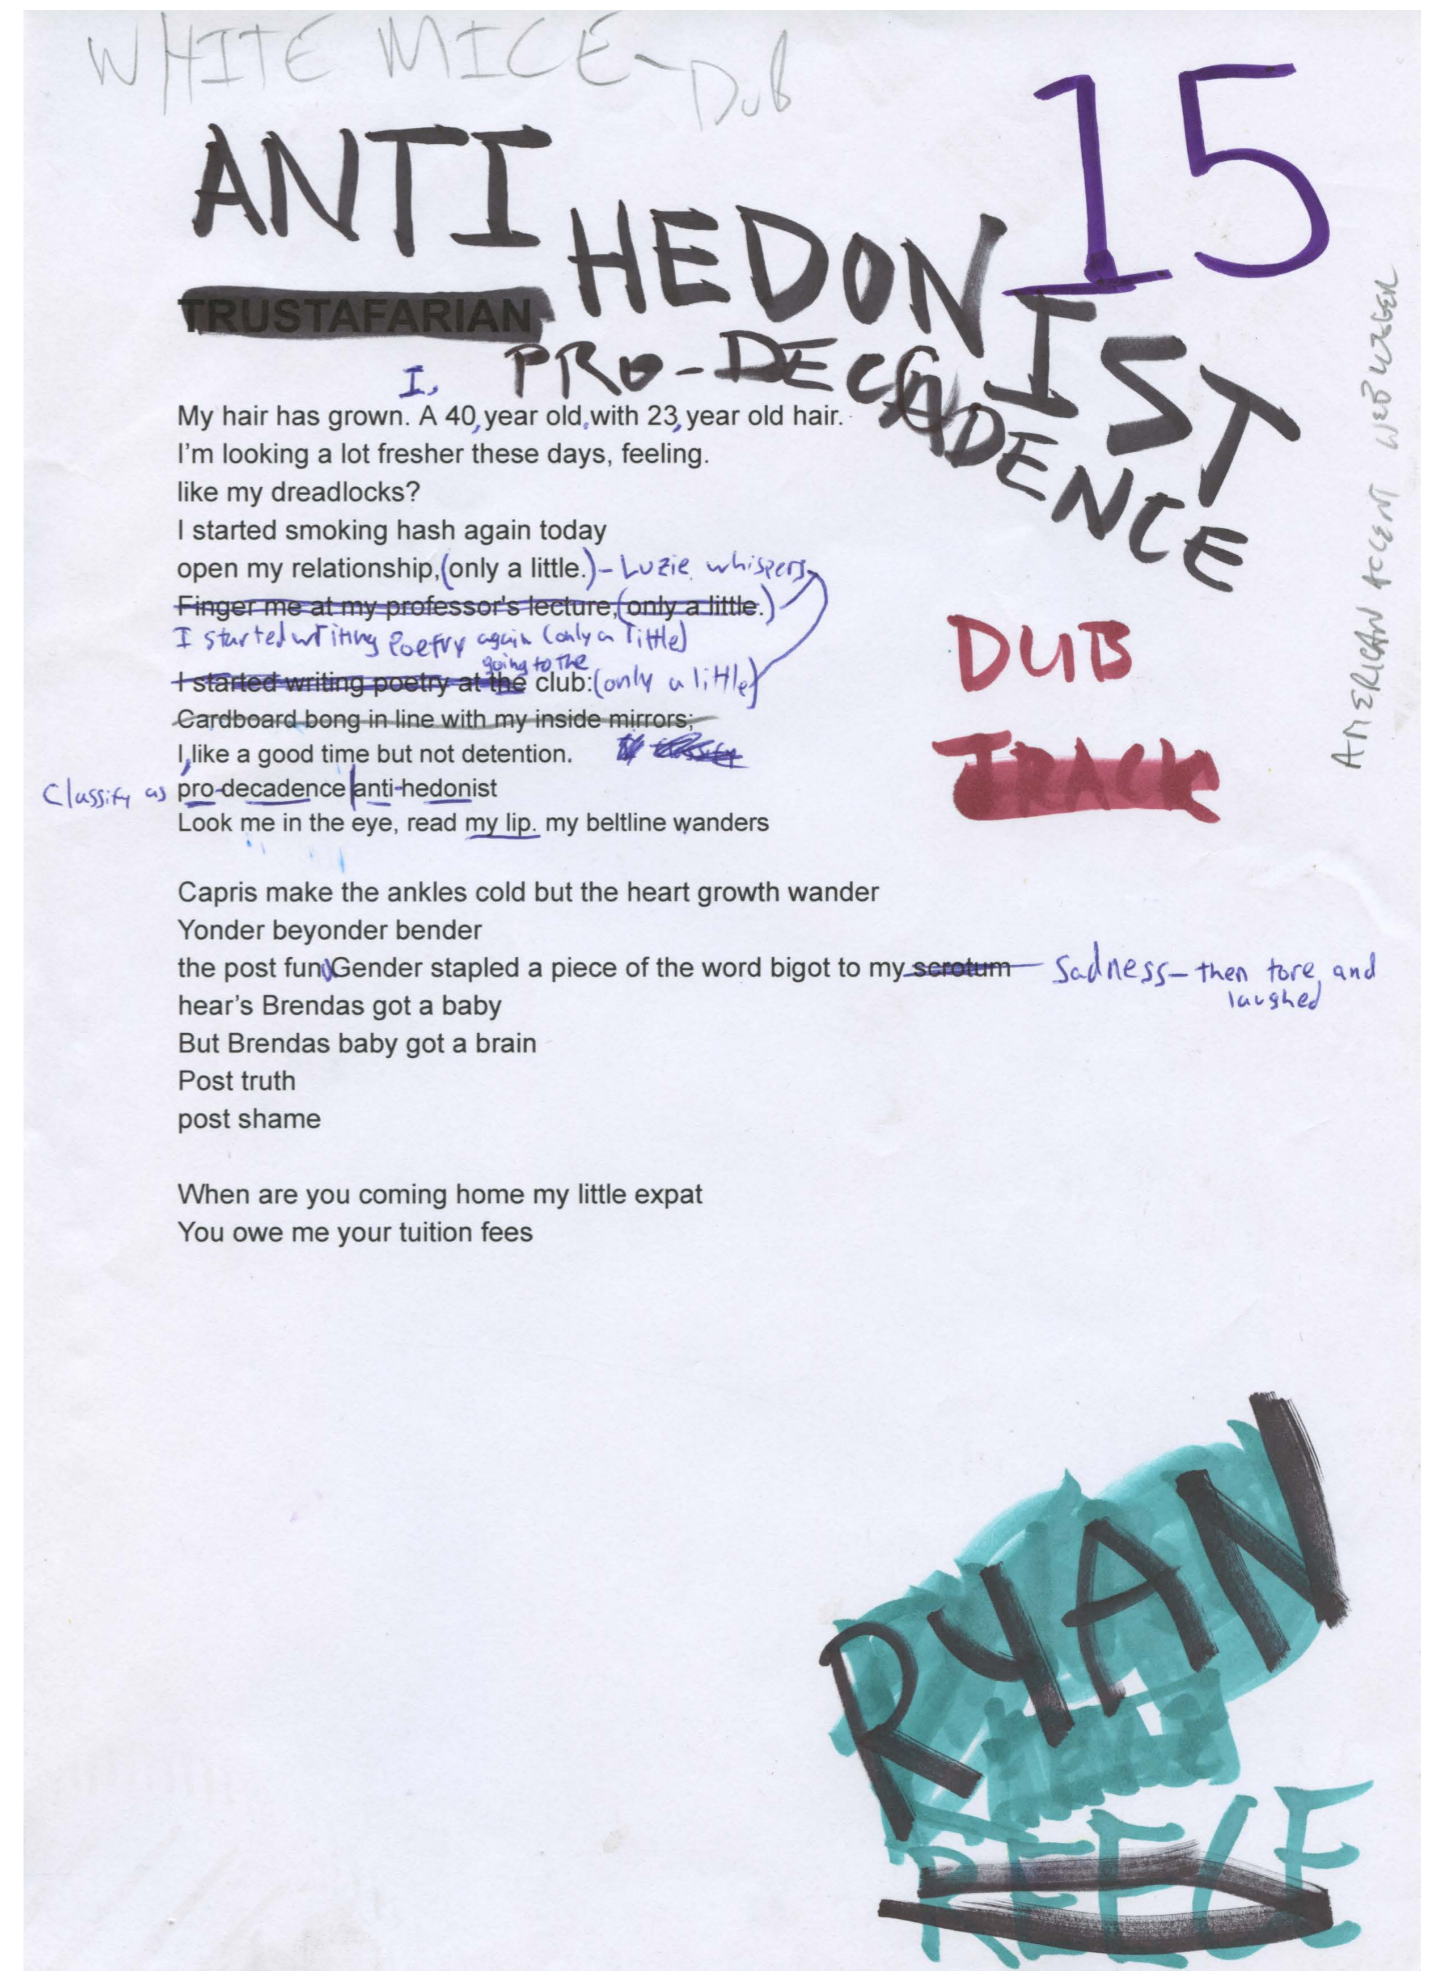 WHITE MICE - DUB
15
ANTI
HEDONIST
TRUSTAFARIAN
PRO-DECADENCE
I,
My hair has grown. A 40, year old, with 23, year old hair.
I'm looking a lot fresher these days, feeling.
like my dreadlocks?
I started smoking hash again today
open my relationship, (only a little.) - Luzie whispers
Finger me at my professor's lecture, (only a little.)
I started writing Poetry again (only a little)
going to the
I started writing poetry at the club: (only a little)
Cardboard bong in line with my inside mirrors;
I, like a good time but not detention.
Classify as pro-decadence | anti-hedonist
Look me in the eye, read my lip. my beltline wanders
Capris make the ankles cold but the heart growth wander
Yonder beyonder bender
the post fun Gender stapled a piece of the word bigot to my scrotum Sadness - then tore, and
laughed
hear's Brendas got a baby
But Brendas baby got a brain
Post truth
post shame
When are you coming home my little expat
You owe me your tuition fees
DUB
TRACK
AMERICAN ACCENT
RYAN
REECE